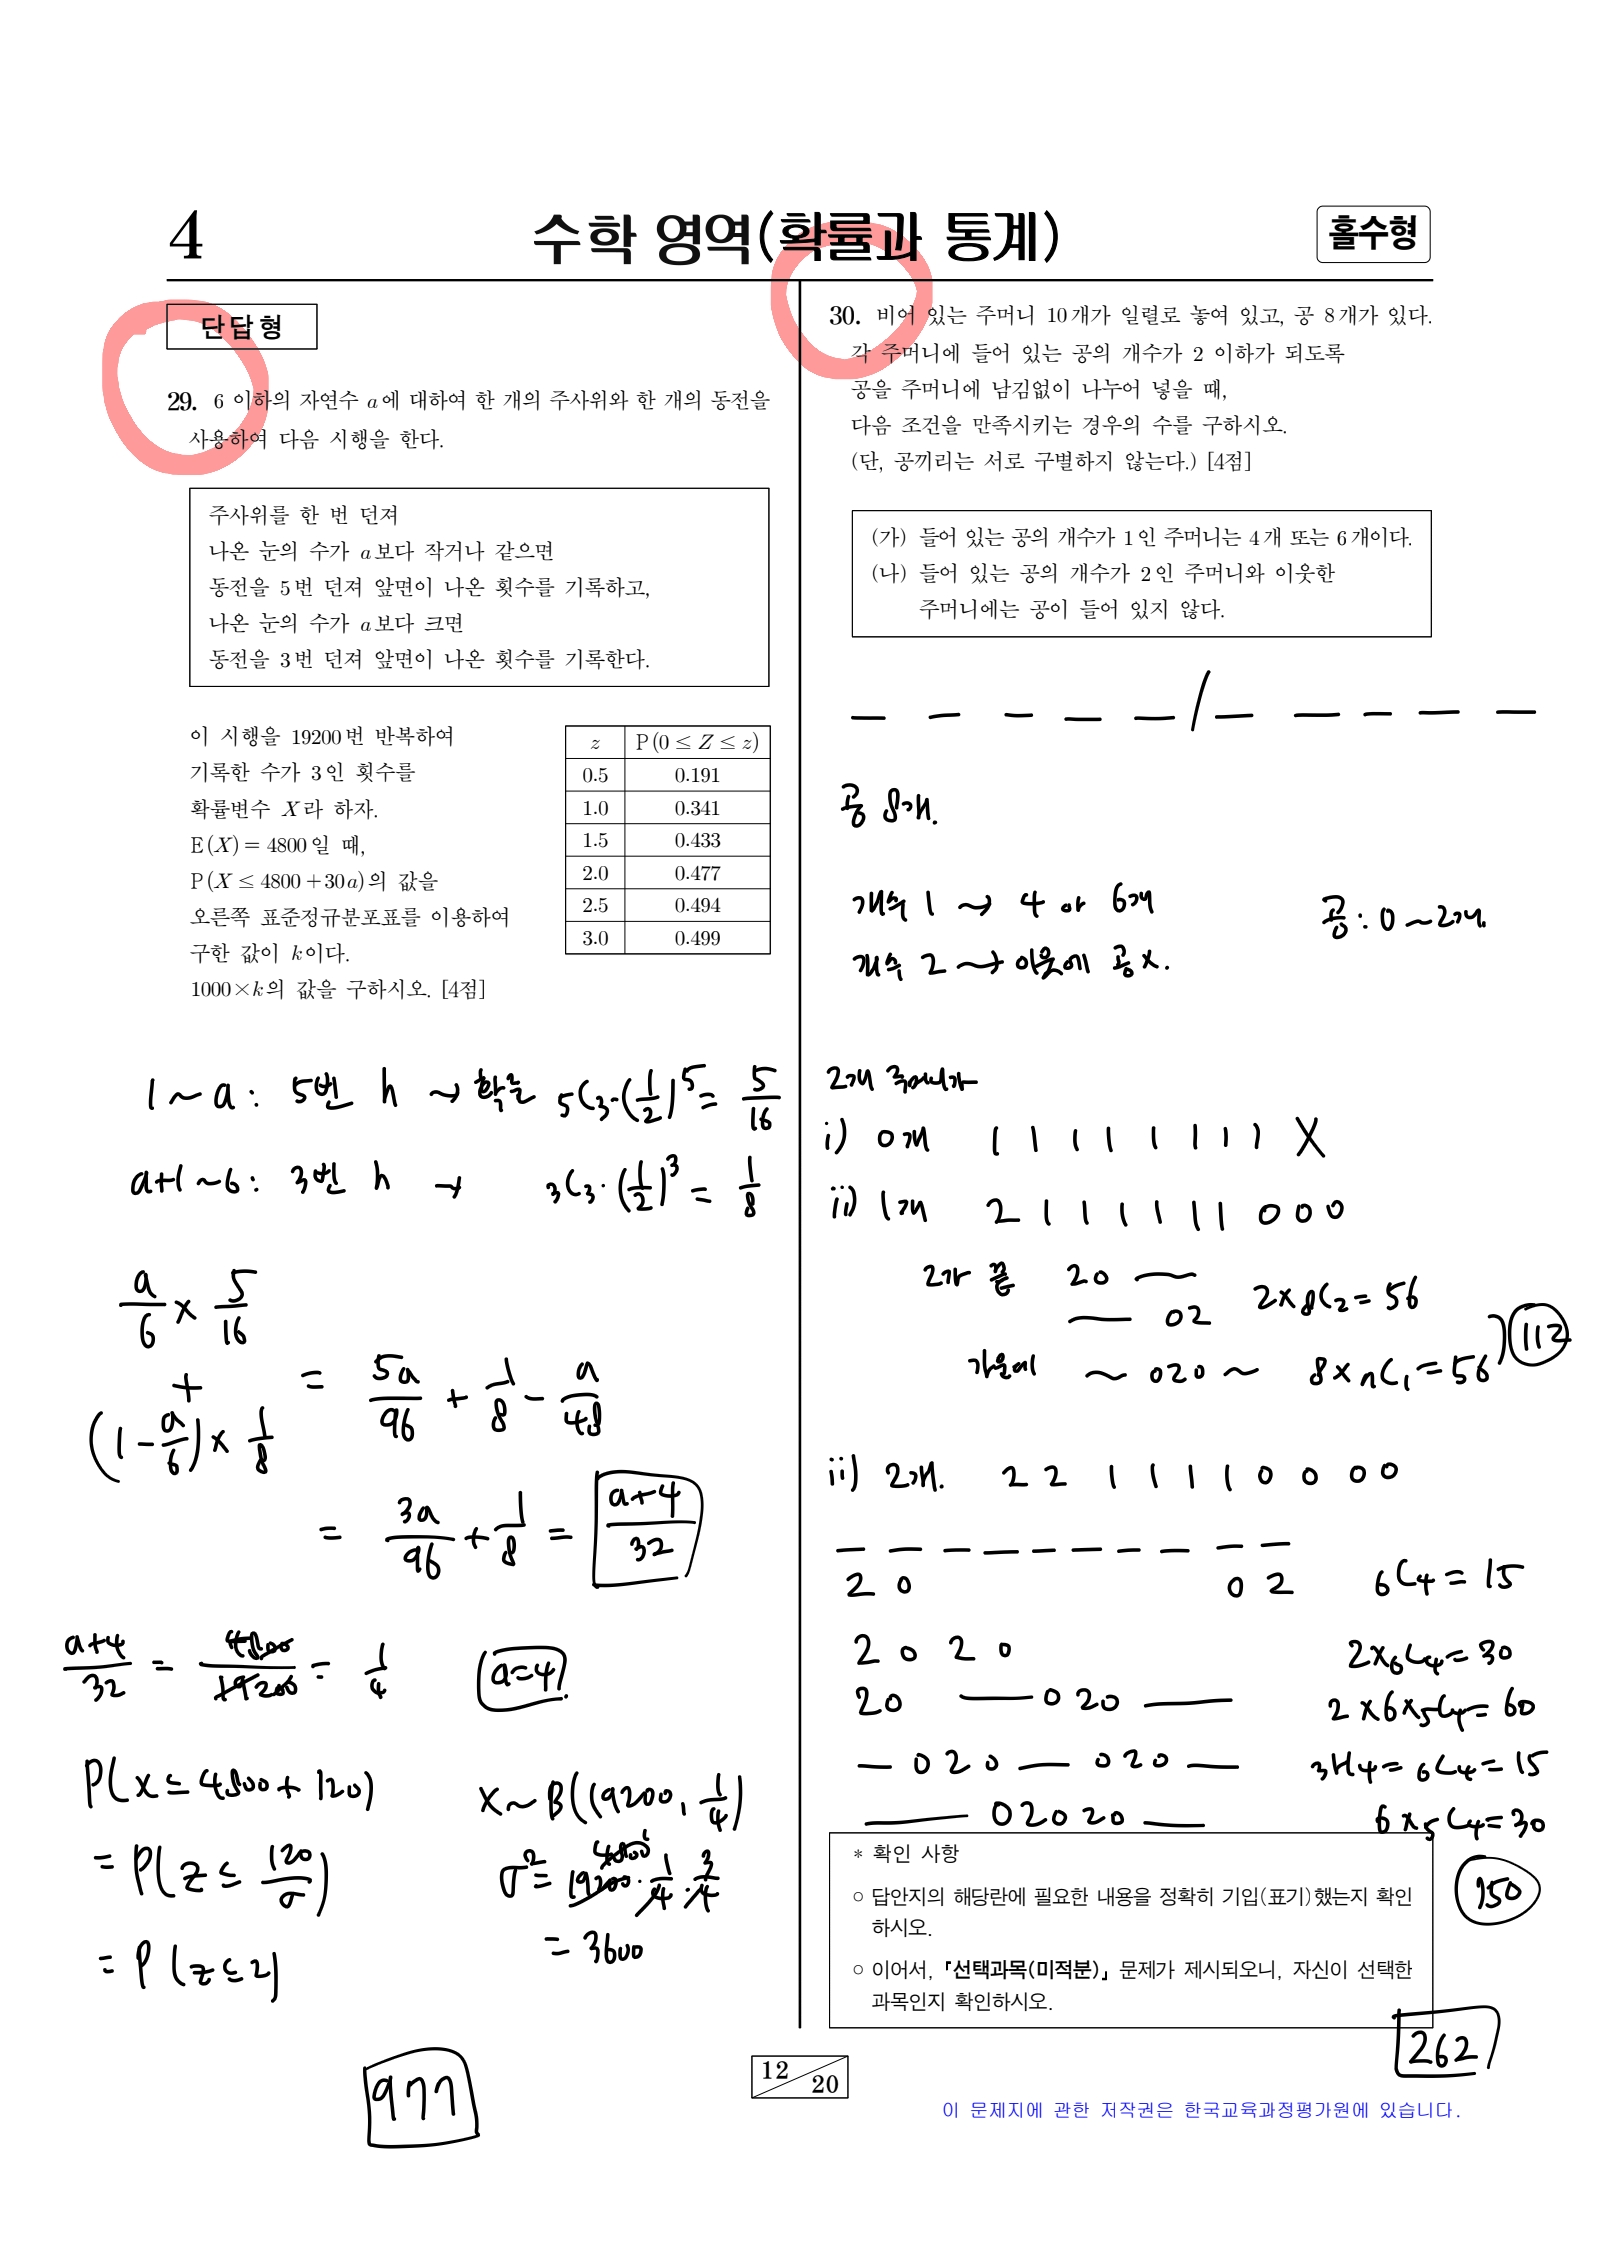 4
수학 영역(확률과 통계)
홀수형
단답형
29. 6 이하의 자연수 a에 대하여 한 개의 주사위와 한 개의 동전을
사용하여 다음 시행을 한다.
주사위를 한 번 던져
나온 눈의 수가 a보다 작거나 같으면
동전을 5번 던져 앞면이 나온 횟수를 기록하고,
나온 눈의 수가 a보다 크면
동전을 3번 던져 앞면이 나온 횟수를 기록한다.
이 시행을 19200번 반복하여
기록한 수가 3인 횟수를
확률변수 X라 하자.
E(X)=4800일 때,
P(X≤4800+30a)의 값을
오른쪽 표준정규분포표를 이용하여
구한 값이 k이다.
1000×k의 값을 구하시오. [4점]
z P(0≤Z≤z)
0.5 0.191
1.0 0.341
1.5 0.433
2.0 0.477
2.5 0.494
3.0 0.499
1~a: 5번 h → 확률 5C3·(1/2)^5 = 5/16
a+1~6: 3번 h → 3C3·(1/2)^3 = 1/8
a/6 × 5/16
+
(1-a/6)× 1/8
= 5a/96 + 1/8 - a/48
= 3a/96 + 1/8 = a+4/32
a+4/32 = 4800/19200 = 1/4 a=4.
P(X≤4800+120)
= P(Z≤ 120/σ)
= P(Z≤2)
X~B(19200, 1/4)
σ²= 19200·1/4·3/4
4800
= 3600
977
30. 비어 있는 주머니 10개가 일렬로 놓여 있고, 공 8개가 있다.
각 주머니에 들어 있는 공의 개수가 2 이하가 되도록
공을 주머니에 남김없이 나누어 넣을 때,
다음 조건을 만족시키는 경우의 수를 구하시오.
(단, 공끼리는 서로 구별하지 않는다.) [4점]
(가) 들어 있는 공의 개수가 1인 주머니는 4개 또는 6개이다.
(나) 들어 있는 공의 개수가 2인 주머니와 이웃한
주머니에는 공이 들어 있지 않다.
공 8개.
개수 1 → 4 or 6개
공: 0~2개.
개수 2 → 이웃에 공 x.
2개 주머니가
i) 0개 1 1 1 1 1 1 1 1 X
ii) 1개 2 1 1 1 1 1 1 0 0 0
2가 끝 20 —
— 02 2×8C2=56
가운데 ~ 020 ~ 8×7C1=56
112
ii) 2개. 2 2 1 1 1 1 0 0 0 0
2 0 0 2 6C4=15
2 0 2 0 2×6C4=30
20 — 0 20 — 2×6×5C4=60
— 0 2 0 — 0 2 0 — 3H4=6C4=15
— 02020 — 6×5C4=30
150
262
* 확인 사항
○ 답안지의 해당란에 필요한 내용을 정확히 기입(표기)했는지 확인
하시오.
○ 이어서, 「선택과목(미적분)」 문제가 제시되오니, 자신이 선택한
과목인지 확인하시오.
12
20
이 문제지에 관한 저작권은 한국교육과정평가원에 있습니다.